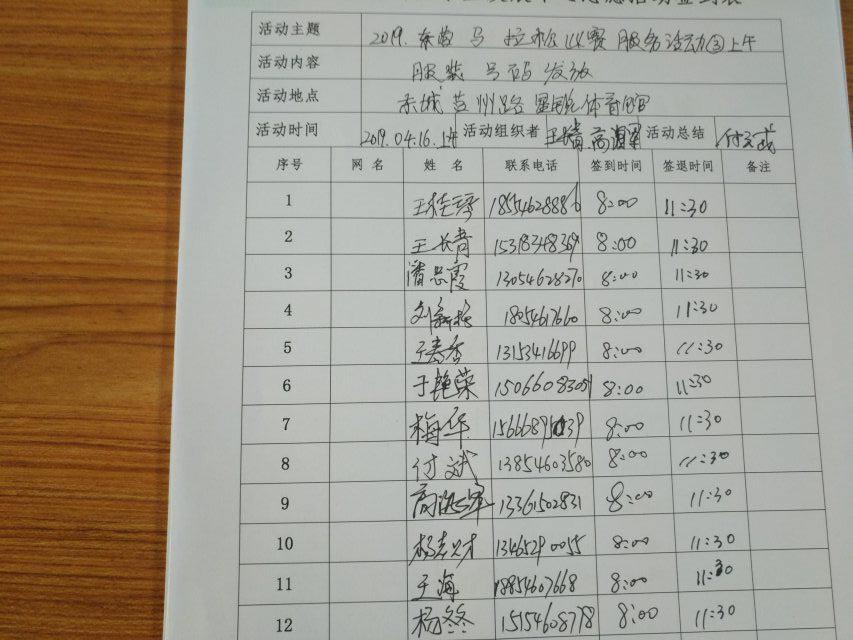 活动主题 2019. 东营马拉松比赛 服务活动③上午
活动内容 服装号码发放
活动地点 东城 路 体育馆
活动时间 2019.04.16.上午 活动组织者 王长青 活动总结
序号 网名 姓名 联系电话 签到时间 签退时间 备注
1 18554628886 8:00 11:30
2 王长青 15318348369 8:00 11:30
3 潘思霞 13054628270 8:00 11:30
4 8:00 11:30
5 于春香 13153416699 8:00 11:30
6 于艳荣 8:00 11:30
7 梅华 8:00 11:30
8 付斌 13854603580 8:00 11:30
9 13361502831 8:00 11:30
10 13465290055 8:00 11:30
11 于海 18854607668 8:00 11:30
12 杨冬冬 15154608778 8:00 11:30